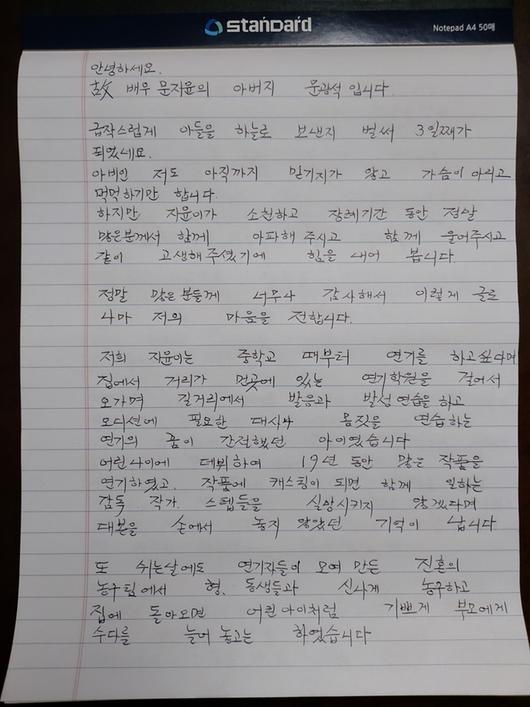 standard
Notepad A4 50매
안녕하세요.
故 배우 문지윤의 아버지 문광석 입니다.
급작스럽게 아들을 하늘로 보낸지 벌써 3일째가
되었네요.
아비인 저도 아직까지 믿기지가 않고 가슴이 아리고
먹먹하기만 합니다.
하지만 지윤이가 소천하고 장례기간 동안 정말
많은분께서 함께 아파해 주시고 함께 울어주시고
같이 고생해 주셨기에 힘을 내어 봅니다
정말 많은 분들께 너무나 감사해서 이렇게 글로
나마 저의 마음을 전합니다.
저희 지윤이는 중학교 때부터 연기를 하고싶다며
집에서 거리가 먼곳에 있는 연기학원을 걸어서
오가며 길거리에서 발음과 발성 연습을 하고
오디션에 필요한 대사나 몸짓을 연습하는
연기의 꿈이 간절했던 아이였습니다
어린나이에 데뷔하여 19년 동안 많은 작품을
연기하였고, 작품에 캐스팅이 되면 함께 일하는
감독 작가. 스텝들을 실망시키지 않겠다며
대본을 손에서 놓지 않았던 기억이 납니다
또 쉬는날에도 연기자들이 모여 만든 진혼의
농구팀에서 형, 동생들과 신나게 농구하고
집에 돌아오면 어린아이처럼 기쁘게 부모에게
수다를 늘어 놓고는 하였습니다